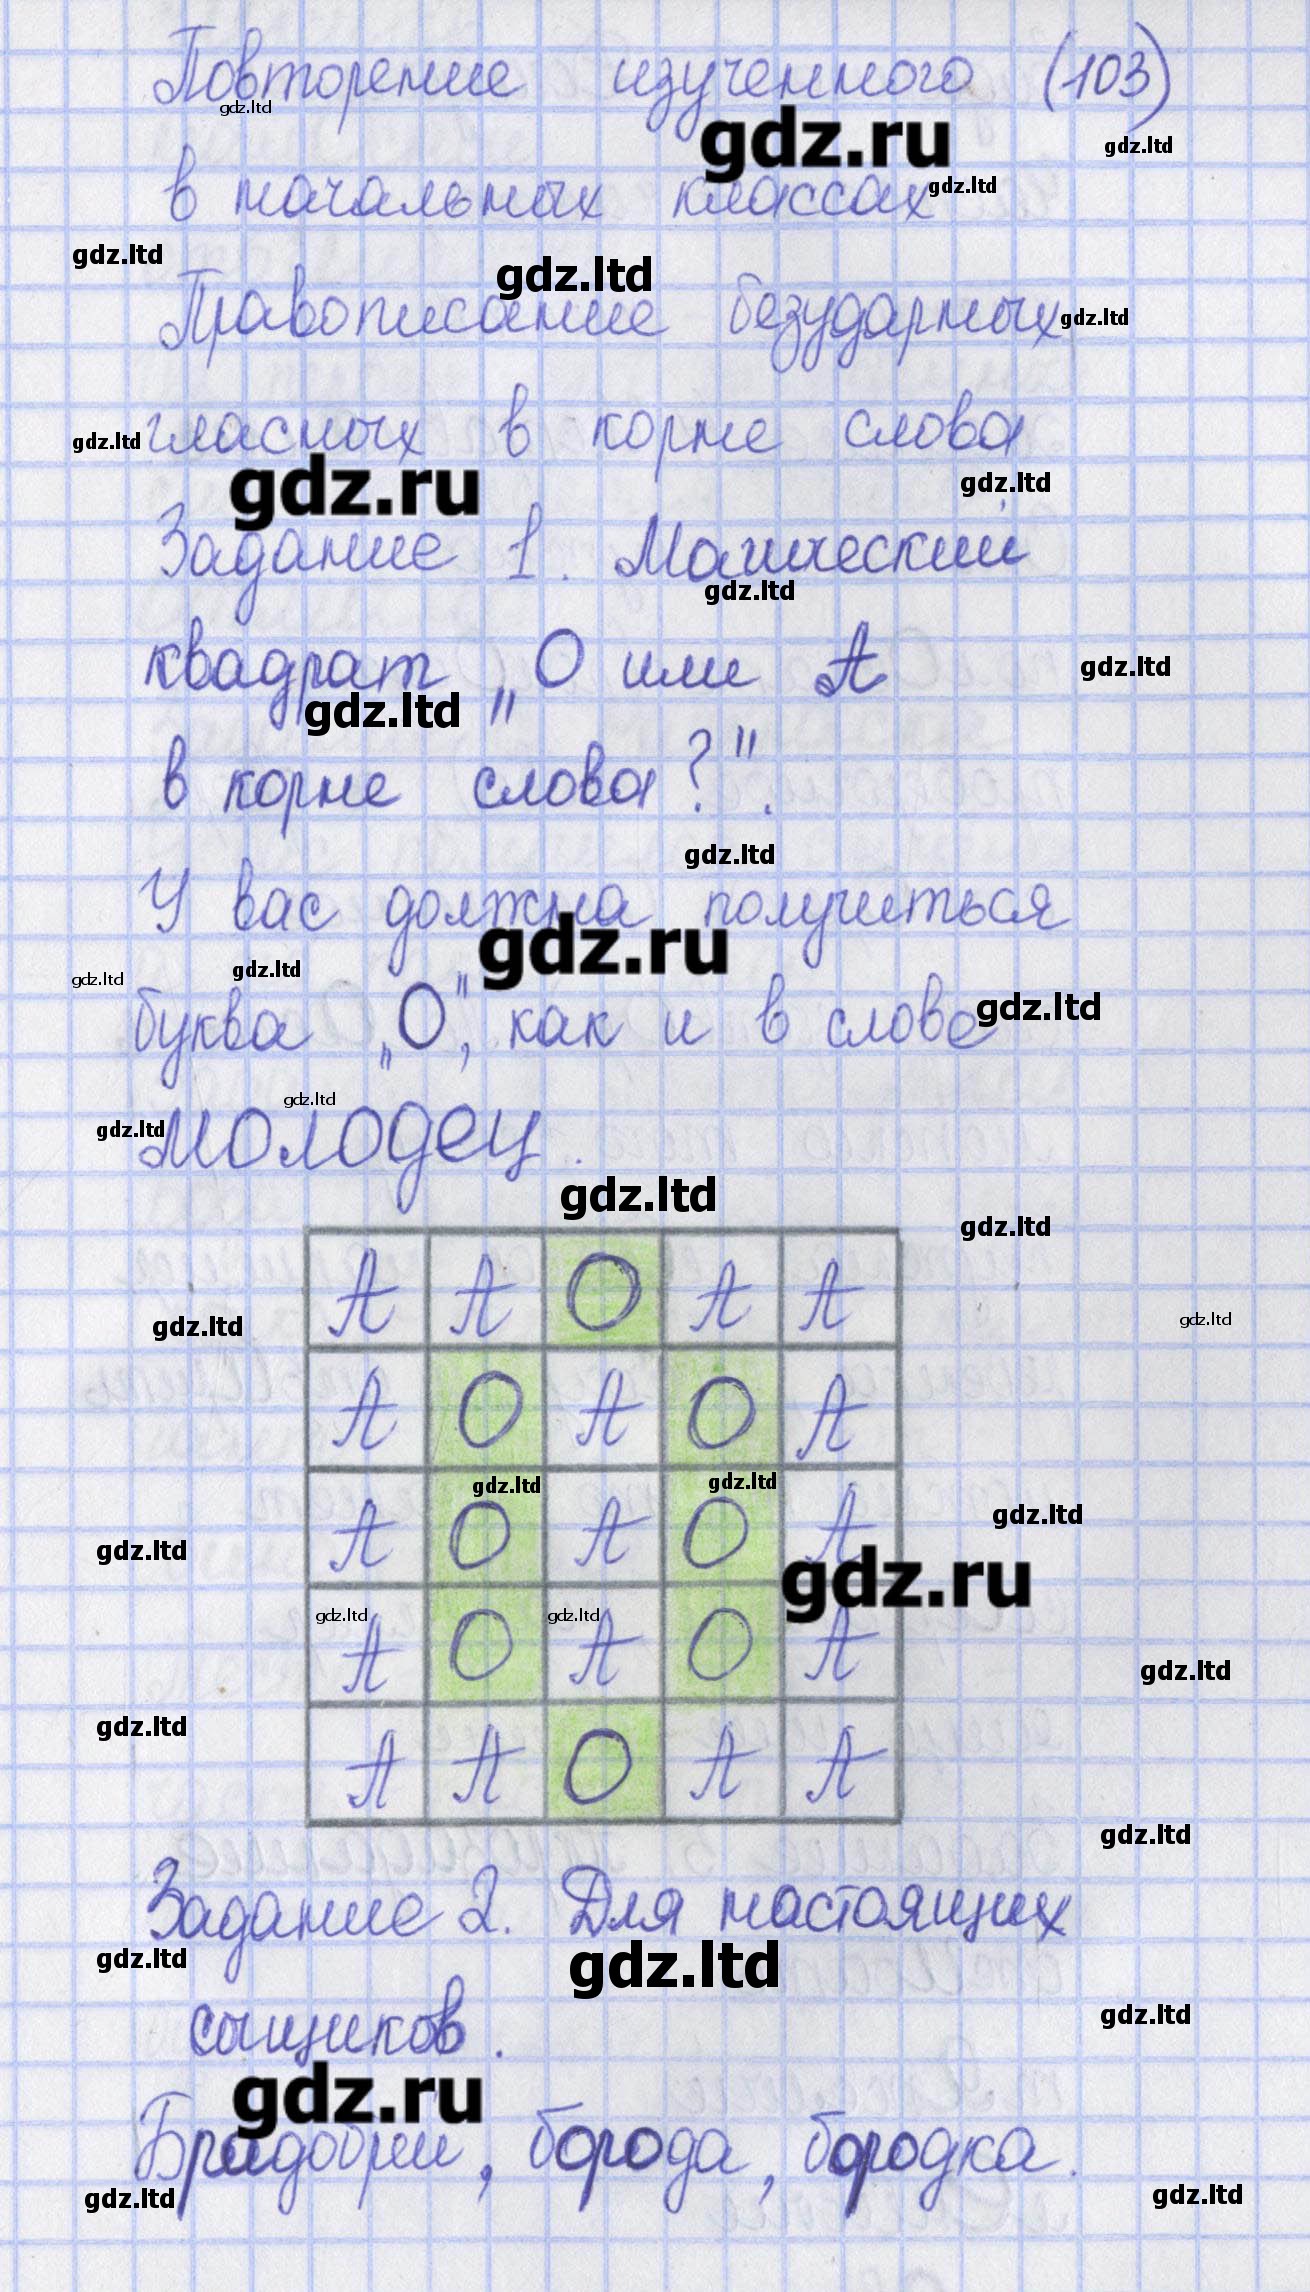 Повторение изученного (103)
в начальных классах
Правописание безударных
гласных в корне слова
Задание 1. Магический
квадрат „О или А
в корне слова?".
У вас должна получиться
буква „О", как и в слове
молодец.
А А О А А
А О А О А
А О А О А
А О А О А
А А О А А
Задание 2. Для настоящих
сыщиков.
Брадобрей, борода, бородка.
gdz.ru
gdz.ltd